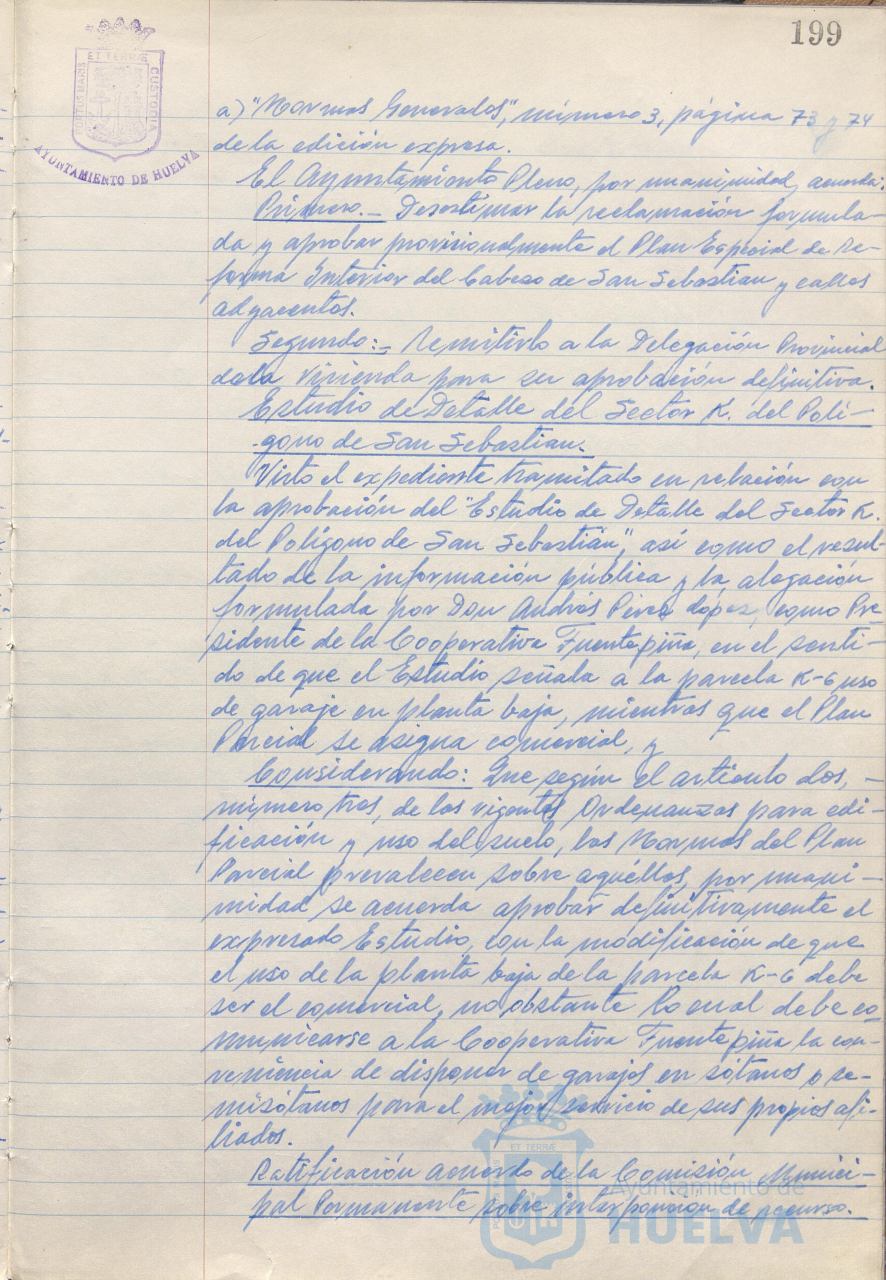 199
ET TERRÆ
PORTUS MARIS
CUSTODIA
AYUNTAMIENTO DE HUELVA
a) "Normas Generales", número 3, página 73 y 74
de la edición expresa.
El Ayuntamiento Pleno, por unanimidad, acuerda:
Primero.- Desestimar la reclamación formula-
da y aprobar provisionalmente el Plan Especial de Re-
forma Interior del Cabezo de San Sebastian y calles
adyacentes.
Segundo:- Remitirlo a la Delegación Provincial
de la Vivienda para su aprobación definitiva.
Estudio de Detalle del Sector K. del Polí-
-gono de San Sebastian.
Visto el expediente tramitado en relación con
la aprobación del "Estudio de Detalle del Sector K.
del Polígono de San Sebastián", así como el resul-
tado de la información pública y la alegación
formulada por Don Andrés Pérez López, como Pre-
sidente de la Cooperativa Fuentepiña, en el senti-
do de que el Estudio señala a la parcela K-6 uso
de garaje en planta baja, mientras que el Plan
Parcial se asigna comercial, y
Considerando: Que según el artículo dos, -
número tres, de las vigentes Ordenanzas para edi-
ficación y uso del suelo, las Normas del Plan
Parcial prevalecen sobre aquéllas, por unani-
midad se acuerda aprobar definitivamente el
expresado Estudio, con la modificación de que
el uso de la planta baja de la parcela K-6 debe
ser el comercial, no obstante lo cual debe co-
municarse a la Cooperativa Fuentepiña la con-
veniencia de disponer de garajes en sótanos o se-
misótanos para el mejor servicio de sus propios afi-
liados.
Ratificación acuerdo de la Comisión Munici-
pal Permanente sobre interposición de recurso.
ET TERRÆ
Ayuntamiento de
HUELVA